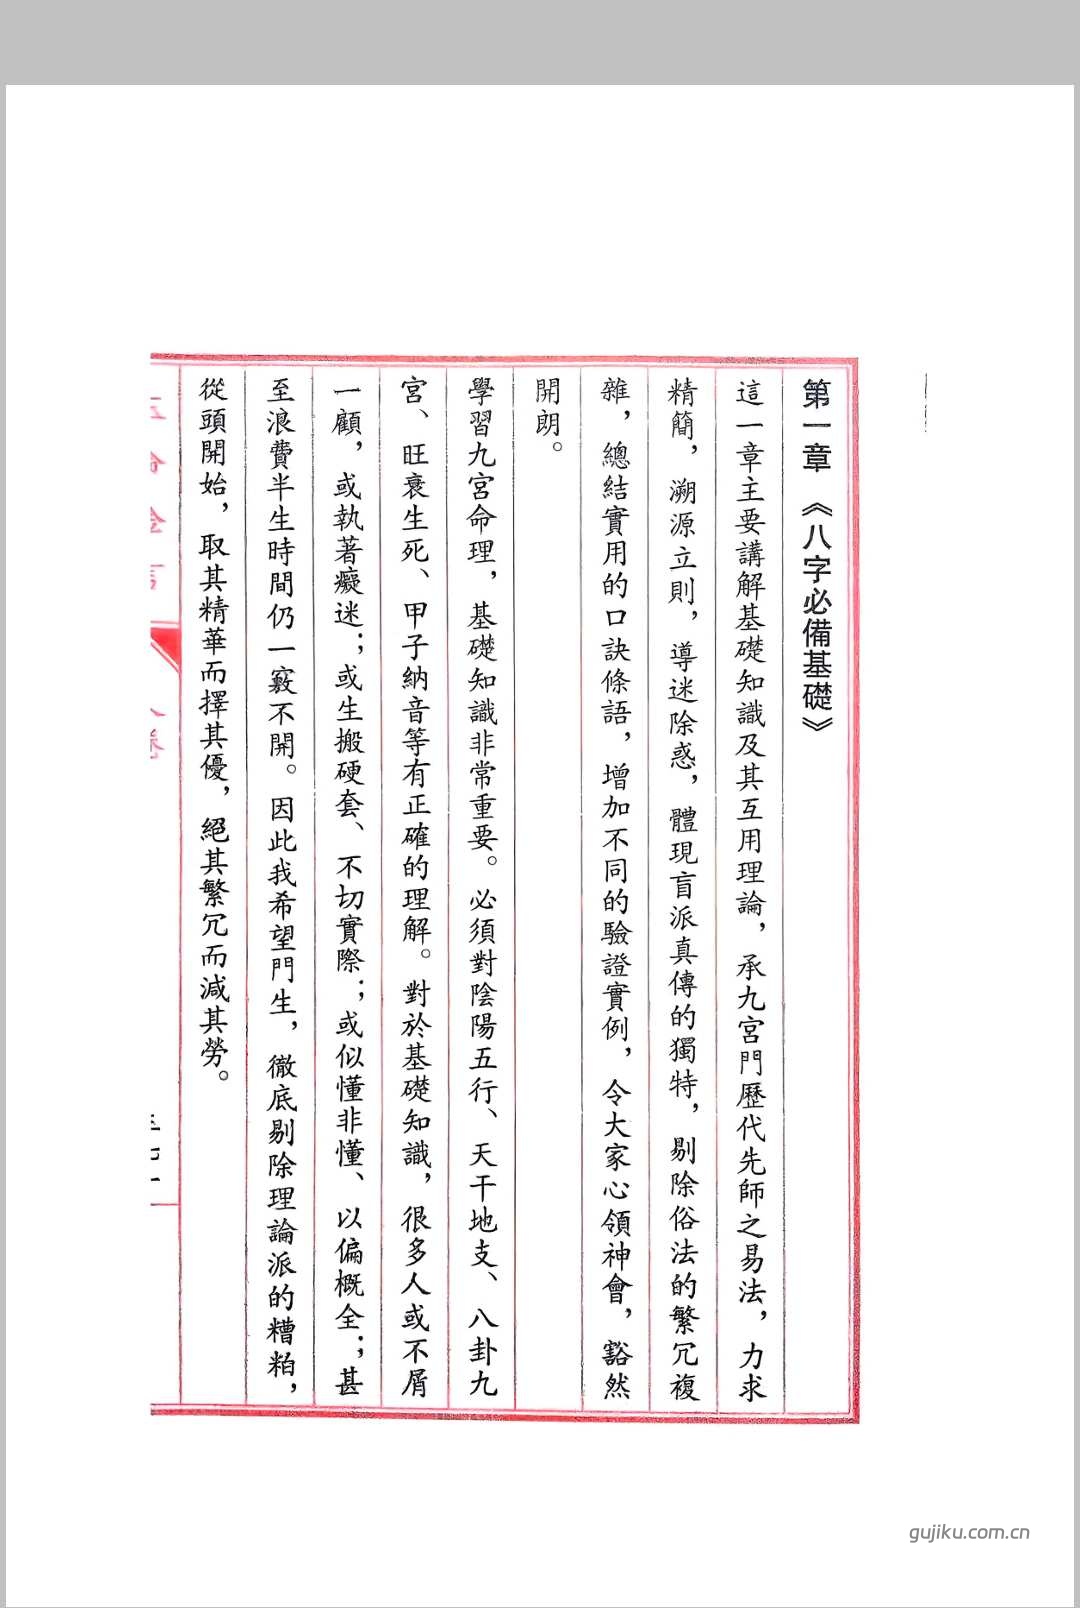 第一章　《八字必備基礎》
這一章主要講解基礎知識及其互用理論，承九宮門歷代先師之易法，力求
精簡，溯源立則，導迷除惑，體現盲派真傳的獨特，剔除俗法的繁冗複
雜，總結實用的口訣條語，增加不同的驗證實例，令大家心領神會，豁然
開朗。
學習九宮命理，基礎知識非常重要。必須對陰陽五行、天干地支、八卦九
宮、旺衰生死、甲子納音等有正確的理解。對於基礎知識，很多人或不屑
一顧，或執著癡迷；或生搬硬套、不切實際；或似懂非懂、以偏概全；甚
至浪費半生時間仍一竅不開。因此我希望門生，徹底剔除理論派的糟粕，
從頭開始，取其精華而擇其優，絕其繁冗而減其勞。
gujiku.com.cn